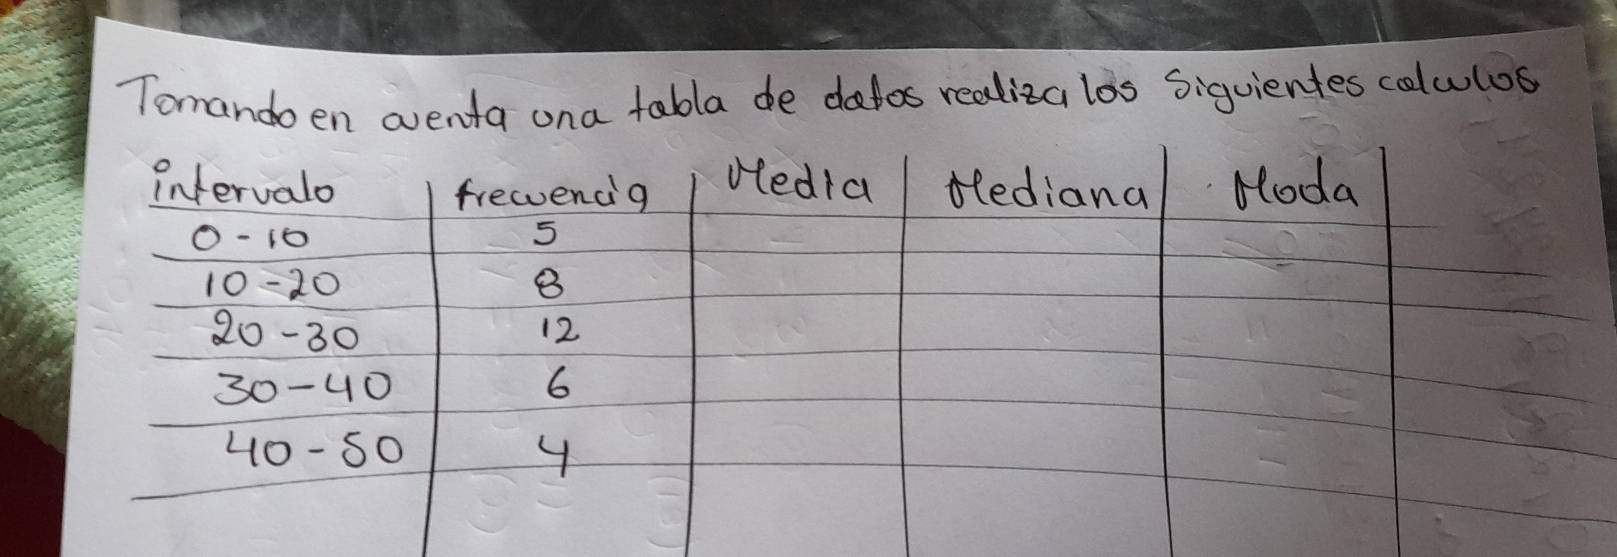 Tomando en cuenta una tabla de datos realiza los Siguientes calculos
intervalo frecuencia Media Mediana Moda
0-10 5
10-20 8
20-30 12
30-40 6
40-50 4